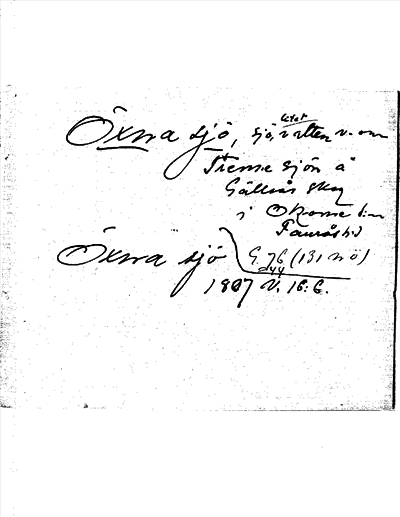 Öxna sjö, sjö, vatten v. om
Tienne sjön å
Gällås skog
i Okome sn
Faurås hd
Öxna sjö G. 76 (131 nö)
1807 N. 16: 6.